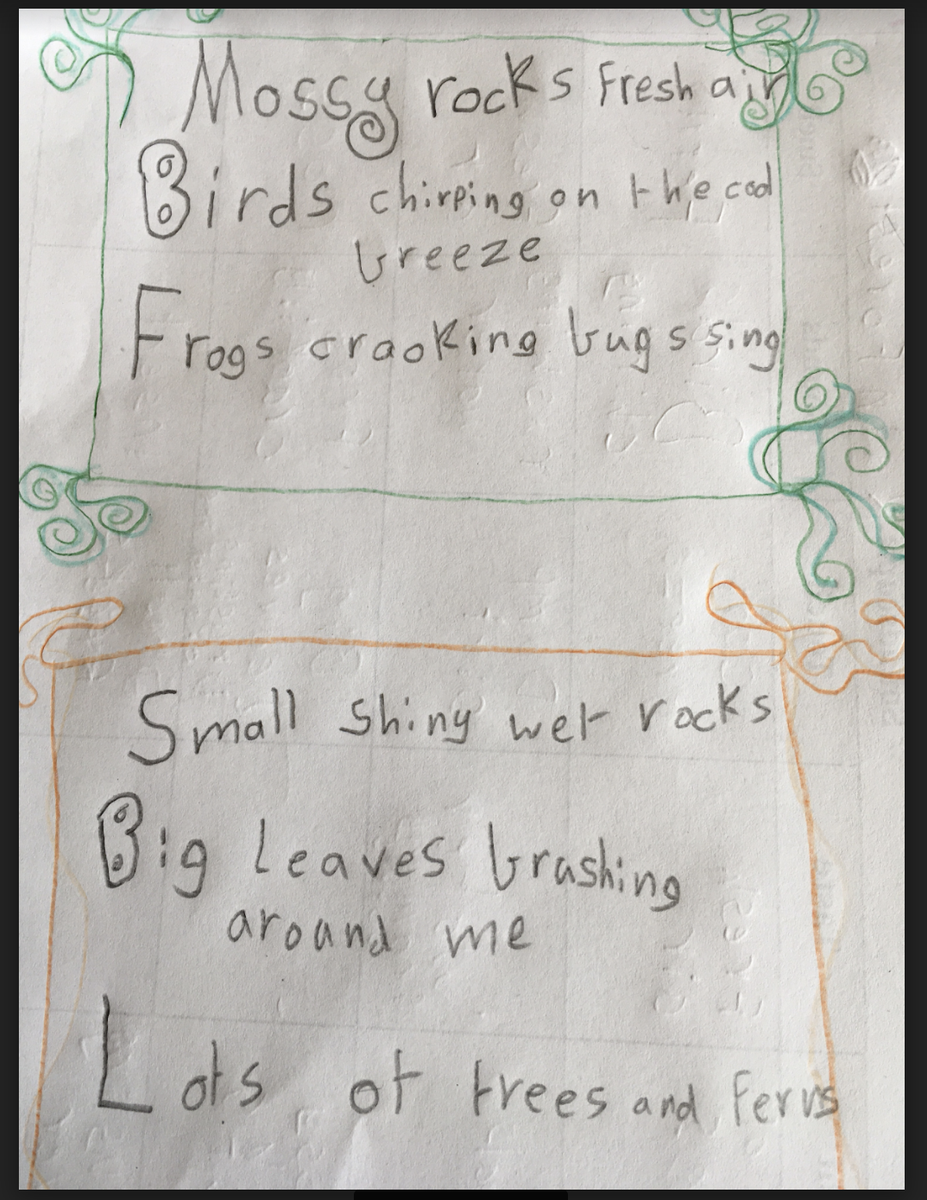 Mossy rocks Fresh air
Birds chirping on the cool
breeze
Frogs craoking bugs sing
Small shiny wet rocks
Big leaves brushing
around me
Lots of trees and Ferns